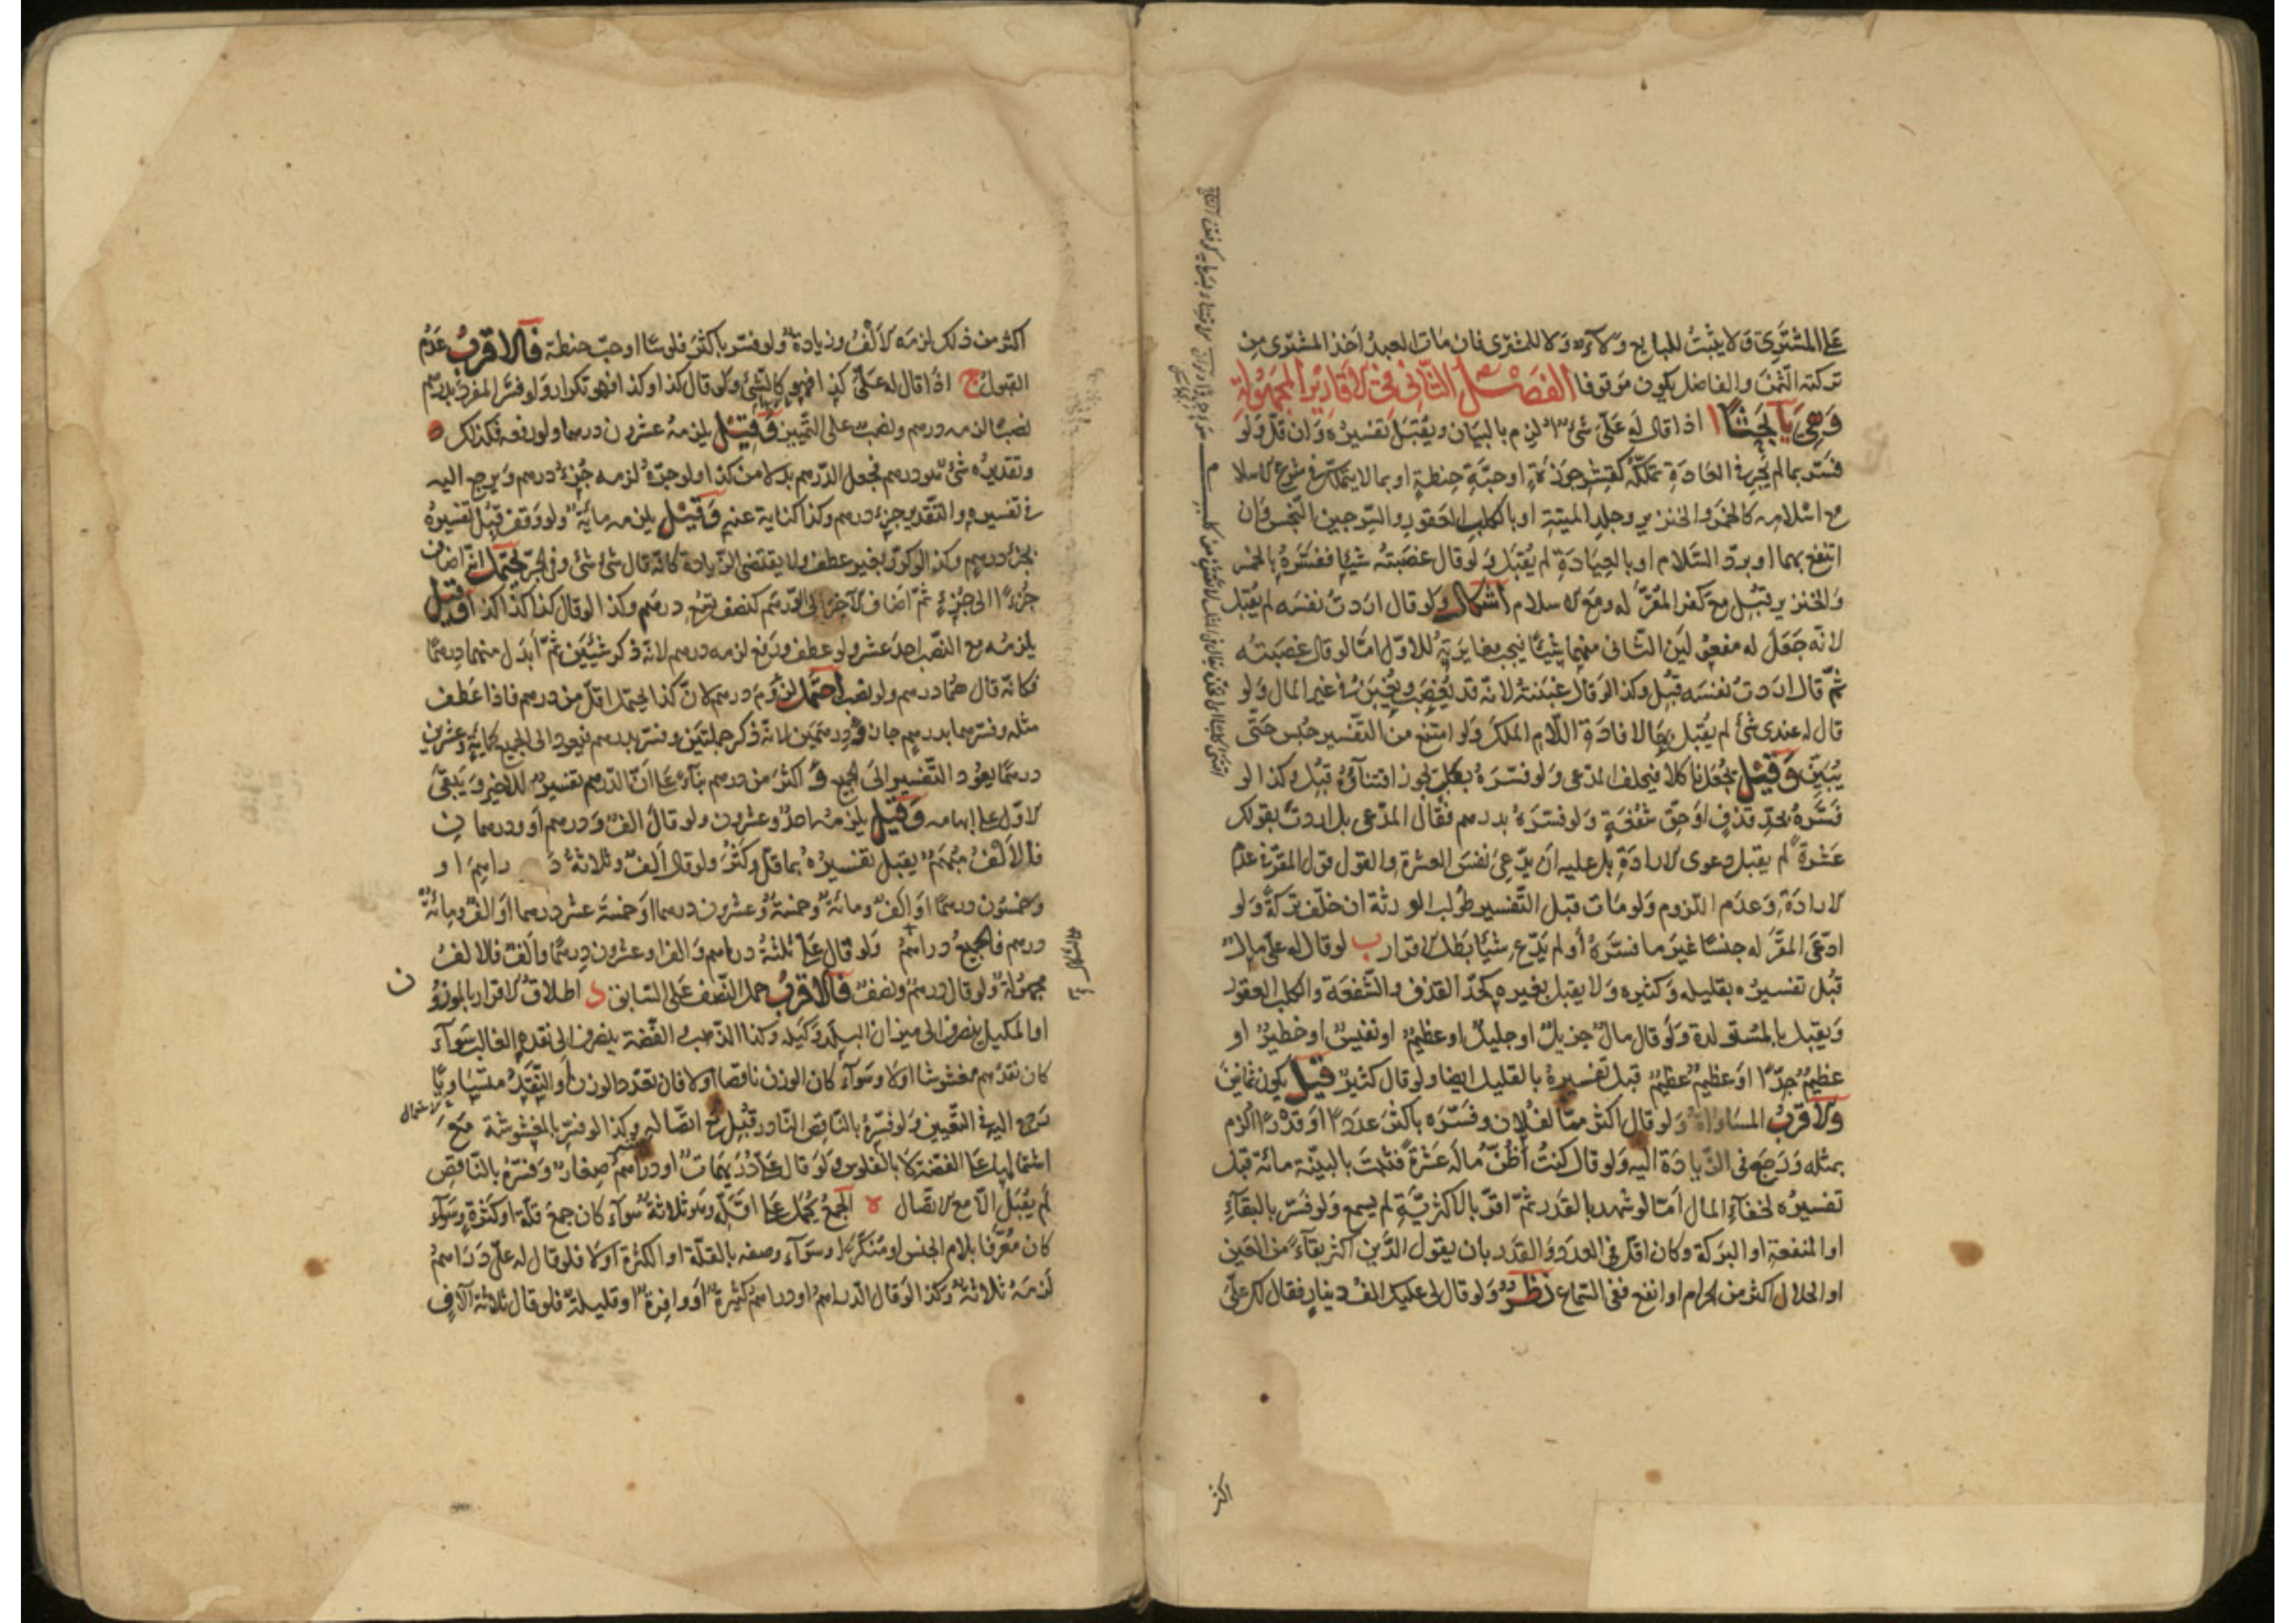 على المشترى ولا يثبت للبايع ولاؤه ولا للمشترى فان مات العبد اخذ المشترى من
تركته الثمن والفاضل يكون موقوفا الفصل الثانى فى الاقارير المجهولة
وهى يا اذا قال له على شئ الزم بالبيان ويقبل تفسيره وان قل ولو
فسر بما لم يجر فى العادة بتملكه كقشر جوزة او حبة حنطة او بما لا يتملك فى شرع الاسلام
مع اسلامه كالخمر والخنزير وجلد الميتة او بالكلب العقور والسرجين النجس وان
انتفع بهما او برد السلام او بالعيادة لم يقبل ولو قال غصبته شيئا ففسره بالخمر
والخنزير قبل مع كفر المقر له ومع الاسلام اشكال ولو قال اردت نفسه لم يقبل
لانه جعل له مفعولين الثانى منهما شيئا فيجب مغايرته للاول امّا لو قال غصبته
ثم قال اردت نفسه قبل وكذا لو قال غبنته لانه قد يغصب ويغبن فى غير المال ولو
قال له عندى شئ لم يقبل بها لافادة اللام الملك ولو امتنع من التفسير حبس حتى
يبين وقيل يجعل ناكلا فيحلف المدعى ولو فسره بكلب يجوز اقتناؤه قبل وكذا لو
فسره بحد قذف او حق شفعة ولو فسره بدرهم فقال المدعى بل اردت بقولك
عشرة لم يقبل دعوى الارادة بل عليه ان يدعى نفس العشرة والقول قول المقر فى عدم
الارادة وعدم اللزوم ولو مات قبل التفسير طولب الورثة ان خلف تركة ولو
ادعى المقر له جنسا غير ما فسره او لم يدع شيئا بطل الاقرار ب لو قال له على مال
قبل تفسيره بقليله وكثيره ولا يقبل بغيره كحد القذف والشفعة والكلب العقور
ويقبل بالمستولدة ولو قال مال جزيل او جليل او عظيم او نفيس او خطير او
عظيم جدّا او عظيم عظيم قبل تفسيره بالقليل ايضا ولو قال كثير قيل يكون ثمانين
والاقرب المساواة ولو قال اكثر مما لفلان وفسره باكثر عددا او قدرا الزم
بمثله ورجع فى الزيادة اليه ولو قال كنت اظن ماله عشرة فثبت بالبينة مائة قبل
تفسيره لخفاء المال امّا لو شهد بالقدر ثم اقر بالاكثرية لم يسمع ولو فسر بالبقاء
او المنفعة او البركة وكان اقل فى العدد والقدر بان يقول الدين اكثر بقاء من العين
او الحلال اكثر من الحرام او انفع ففى السماع نظر ولو قال لى عليك الف دينار فقال لك على
اكثر
اكثر من ذلك لزمه الالف وزيادة ولو فسر باكثر فلوسا او حب حنطة فالاقرب عدم
القبول ج اذا قال له على كذا فهو كالشئ ولو قال كذا او كذا فهو تكرار ولو فسر المفرد بدرهم
نصبا لزمه درهم ونصب على التمييز وقيل يلزمه عشرون درهما ولو رفعه فكذلك
وتقديره شئ هو درهم فجعل الدرهم بدلا من كذا ولو جرّه لزمه جزء درهم ويرجع اليه
فى تفسيره والتقدير جزء درهم وكذا كناية عنه وقيل يلزمه مائة ولو وقف قبل تفسيره
بجزء درهم وكذا لو كرر بغير عطف ولا يقتضى الزيادة كانه قال شئ شئ وفى الجر يحتمل انه اضاف
جزءا الى جزء ثم اضاف الاخر الى الدرهم كنصف تسع درهم وكذا لو قال كذا كذا كذا وقيل
يلزمه مع النصب احد عشر ولو عطف ورفع لزمه درهم لانه ذكر شيئين ثم ابدل منهما درهما
فكانه قال هما درهم ولو نصب احتمل لزوم درهم لان كذا يحتمل اقل من درهم فاذا عطف
مثله وفسرهما بدرهم جاز ودرهمين لانه ذكر جملتين وفسر بدرهم فيعود الى الجميع كمائة وعشرين
درهما يعود التفسير الى الجميع و اكثر من درهم بناء على ان الدرهم تفسير للاخير ويبقى
الاول على ابهامه وقيل يلزمه احد وعشرون ولو قال الف ودرهم او ودرهمان
فالالف مبهم يقبل تفسيره بما قل وكثر ولو قال الف وثلاثة دراهم او
وخمسون درهما او الف ومائة وخمسة وعشرون درهما او خمسة عشر درهما او الف ومائة
درهم فالجميع دراهم ولو قال على ثلثة دراهم والف او عشرون درهما والف فالالف
مجهولة ولو قال درهم ونصف فالاقرب حمل النصف على السابق د اطلاق الاقرار بالموزون
او المكيل ينصرف الى ميزان البلد وكيله وكذا الذهب والفضة ينصرف الى نقده الغالب سواء
كان نقدهم مغشوشا او لا وسواء كان الوزن ناقصا او لا فان تعدد الوزن او النقد متساويا
يرجع اليه فى التعيين ولو فسره بالناقص النادر قبل مع اتصاله وكذا لو فسر بالمغشوشة مع
اشتمالها على الفضة لا بالفلوس ولو قال على دريهمات او دراهم صغار وفسره بالناقص
لم يقبل الا مع الاتصال ه الجمع يحمل على اقله وهو ثلاثة سواء كان جمع قلة او كثرة وسواء
كان معرفا بلام الجنس او منكرا وسواء وصفه بالقلة او الكثرة او لا فلو قال له على دراهم
لزمه ثلاثة وكذا لو قال الدراهم او دراهم كثيرة او وافرة او قليلة فلو قال ثلاثة آلاف